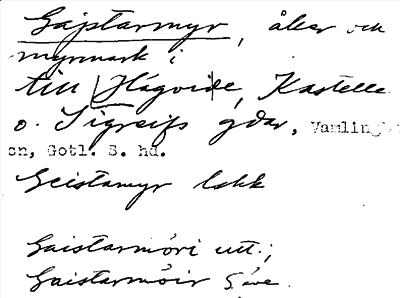 Gajstarmyr, åker och
myrmark i
till Hägvide, Kastelle
o. Sigreifs gdar, Vamling
on, Gotl. S. hd.
Geistamyr lskk
Gaistarmöri utt.;
Gaistarmöir Säve.